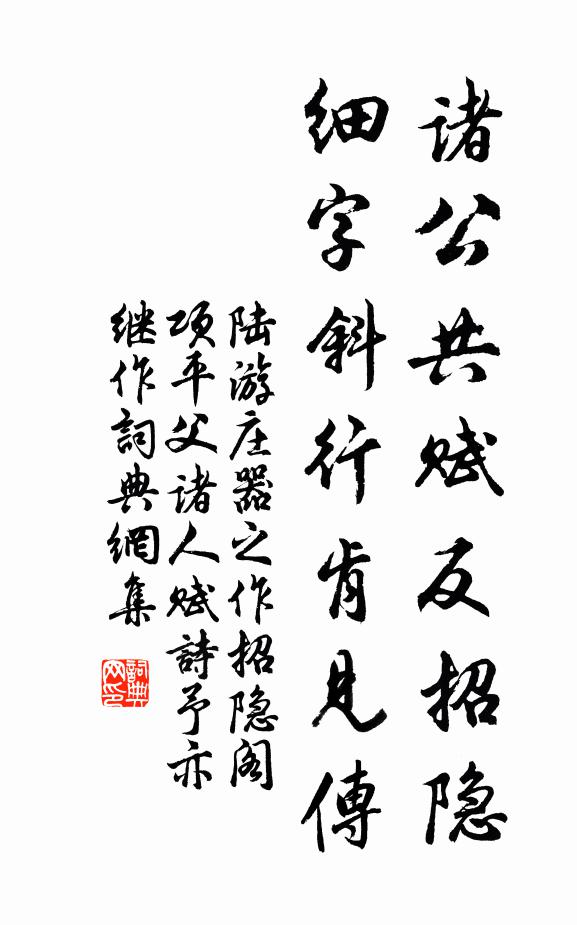 诸公共赋反招隐
细字斜行肯见傳
陆游庄器之作招隐阁
项平父诸人赋詩予亦
继作詞典網集
詞典网印